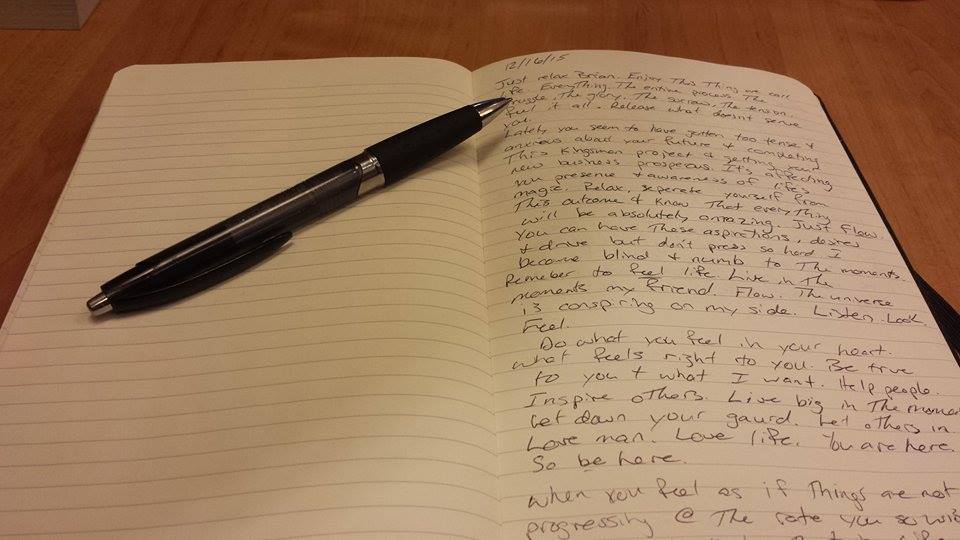 12/16/15
Just relax Brian. Enjoy This Thing we call
life. EveryThing. The entire process. The
struggle, The glory. The sorrow, The tension.
feel it all. Release what doesn't serve
you.
Lately you seem to have gotten too tense +
anxious about your future + completing
This Kingsmen project + getting
new business prosperous. Its affecting
you presence + awareness of life's
magic. Relax, seperete yourself from
This outcome + Know That everyThing
will be absolutely amazing. Just flow.
You can have These aspirations, desires
+ drive but don't press so hard I
become blind + numb to The moments.
Remeber to feel life. Live in The
moments my friend. Flow. The universe
is conspiring on my side. Listen. Look.
Feel.
Do what you feel in your heart.
what feels right to you. Be true
to you + what I want. Help people.
Inspire others. Live big in The mome
Let down your gaurd. Let others in.
Love man. Love life. You are here.
So be here.
when you feel as if Things are not
progressing @ The rate you so